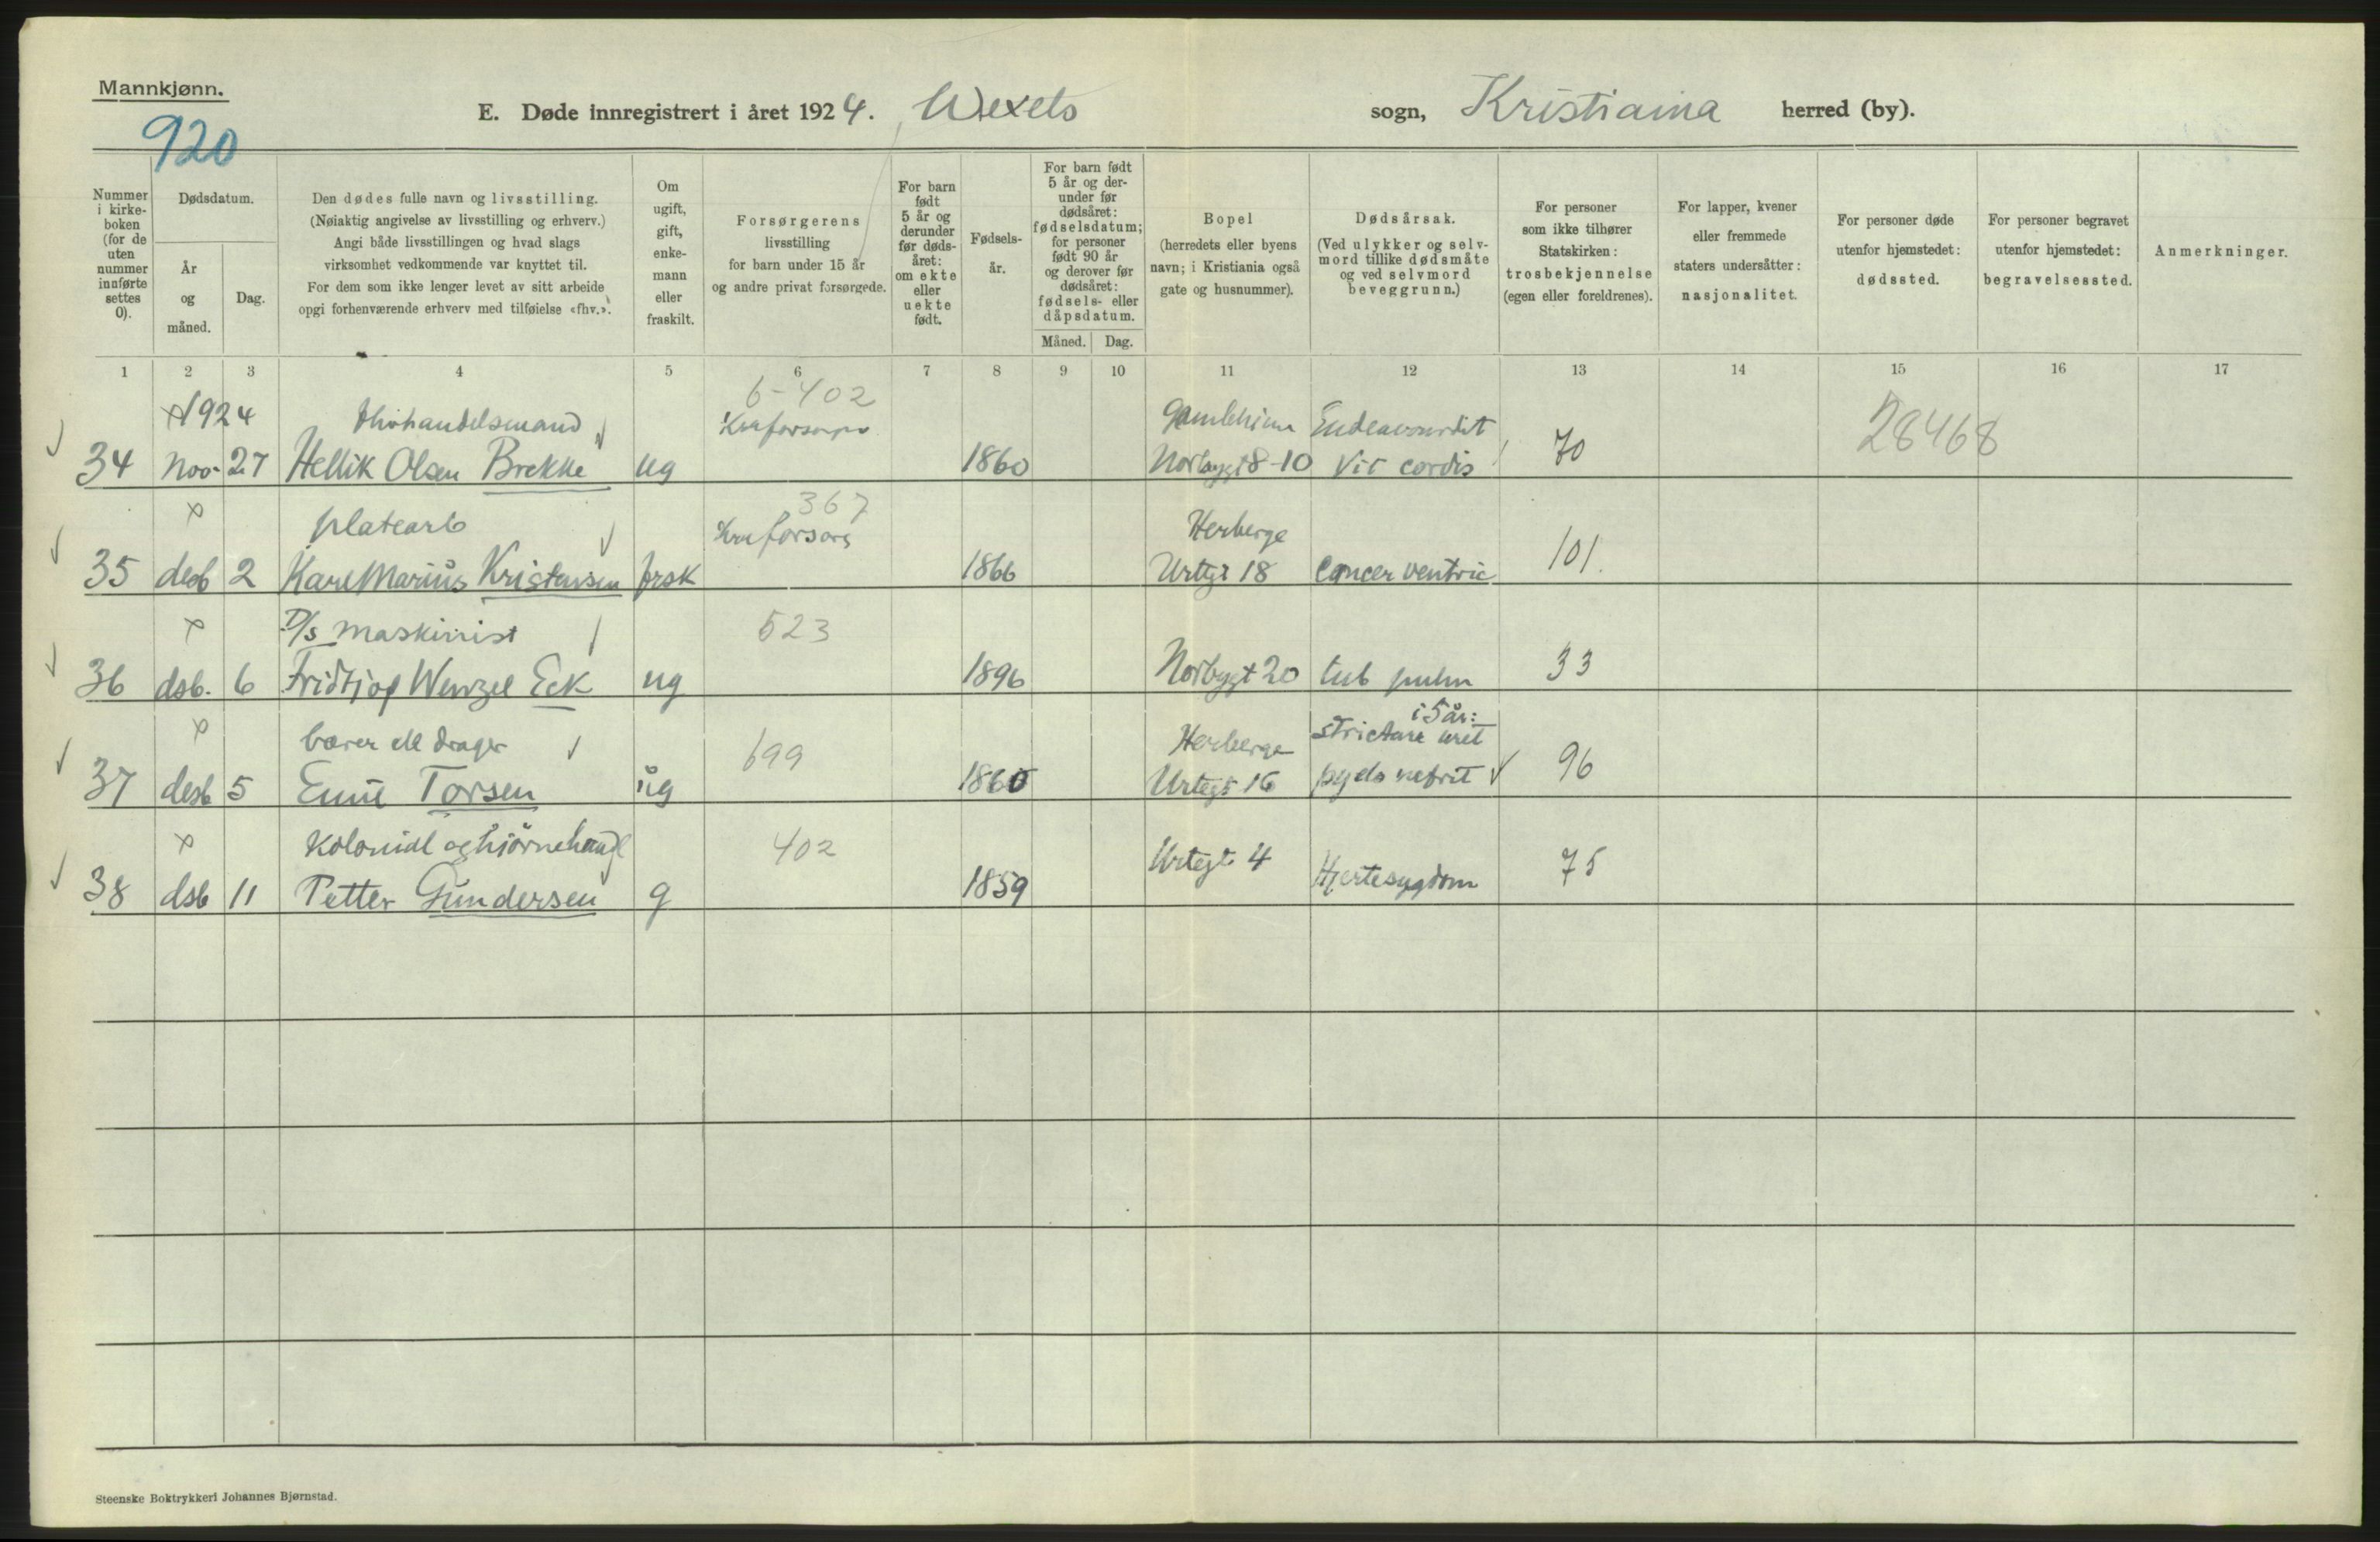 Mannkjønn.
E. Døde innregistrert i året 1924. Wexels sogn, Kristiania herred (by).
920
Nummer i kirke-boken (for de uten nummer innførte settes 0).
Dødsdatum.
År og måned.
Dag.
Den dødes fulle navn og livsstilling.
(Nøiaktig angivelse av livsstilling og erhverv.)
Angi både livsstillingen og hvad slags
virksomhet vedkommende var knyttet til.
For dem som ikke lenger levet av sitt arbeide
opgi forhenværende erhverv med tilføielse «fhv.».
Om ugift, gift, enke-mann eller fraskilt.
Forsørgerens
livsstilling
for barn under 15 år
og andre privat forsørgede.
For barn født 5 år og derunder før døds-året: om ekte eller uekte født.
Fødsels-år.
For barn født 5 år og der-under før dødsåret: fødselsdatum; for personer født 90 år og derover før dødsåret: fødsels- eller dåpsdatum.
Måned. Dag.
Bopel
(herredets eller byens
navn; i Kristiania også
gate og husnummer).
Dødsårsak.
(Ved ulykker og selv-
mord tillike dødsmåte
og ved selvmord
beveggrunn.)
For personer
som ikke tilhører
Statskirken:
trosbekjennelse
(egen eller foreldrenes).
For lapper, kvener
eller fremmede
staters undersåtter:
nasjonalitet.
For personer døde
utenfor hjemstedet:
dødssted.
For personer begravet
utenfor hjemstedet:
begravelsessted.
Anmerkninger.
1 2 3 4 5 6 7 8 9 10 11 12 13 14 15 16 17
1924 6-402 28468
34 Nov. 27 Hellik Olsen Brekke ug 1860 Norbygt 8-10 Vit cordis 70
platearb 367 Herberge
35 desb 2 Karl Marius Kristensen frsk 1866 Urtgt 18 Cancer ventric 101.
D/s maskinist 523
36 dsb. 6 Fridtjof Wenzel Eck ug 1896 Norbygt 20 tub pulm 33
i 5 år:
bærer ell drager 699 Herberge Strictura uret
37 desb 5 Emil Torsen ug 1860 Urtegt 16 pyelo nefrit 96
Kolonial og hjørnehandl 402
38 dsb 11 Petter Gundersen g 1859 Urtegt 4 Hjertesygdom 75
Steenske Boktrykkeri Johannes Bjørnstad.